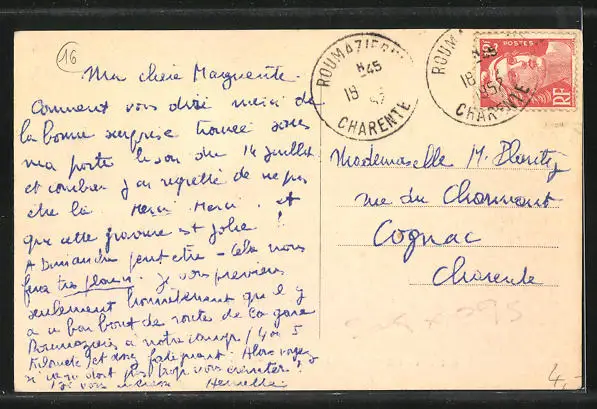 16
Ma chère Marguerite.
Comment vous dire merci de
la bonne surprise trouvée sous
ma porte le soir du 14 juillet
et combien j'ai regretté de ne pas
être là. Merci Merci. et
que cette gravure est jolie !
A Dimanche peut être - Cela nous
fera très plaisir. Je vous préviens
seulement honnêtement que il y
a un bon bout de route de la gare
Roumazières à notre camp (4 ou 5
Kilomètr) et
si
Je vous
ROUMAZIERES
18
45
CHARENTE
ROUMAZ
18
CHARENTE
POSTES
RF
Mademoiselle M.
rue du
Cognac
Charente
4,-